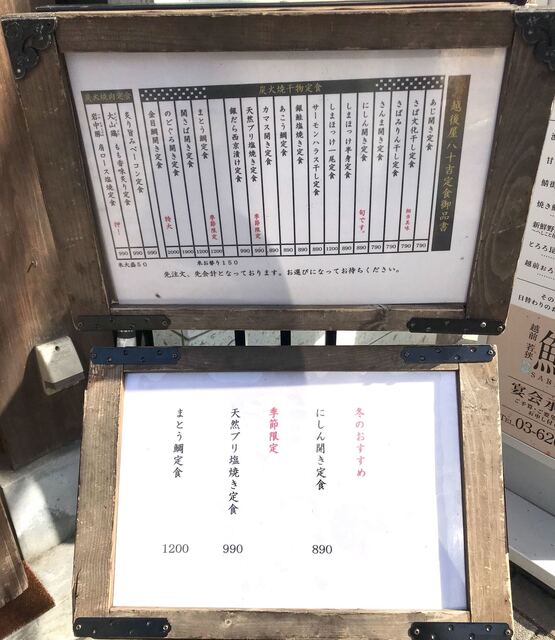 越後屋八十吉定食御品書
炭火焼干物定食
あじ開き定食 790
さば文化干し定食 790
さばみりん干し定食 790
さんま開き定食 790
にしん開き定食 旬です。 890
しまほっけ半身定食 890
しまほっけ一尾定食 1200
サーモンハラス干し定食 890
銀鮭塩焼き定食 890
あこう鯛定食 890
カマス開き定食 890
天然ブリ塩焼き定食 季節限定 990
銀だら西京漬け定食 990
まとう鯛定食 季節限定 1200
開きさば開き定食 1200
のどぐろ開き定食 特大 2000
金目鯛開き定食
炭火焼肉定食
炙り旨みベーコン定食 990
大山鶏 もも香味炙り定食 990
岩中豚 肩ロース塩焼定食 押! 990
米大盛50
米お替り150
先注文、先会計となっております。お選びになってお待ちください。
冬のおすすめ
にしん開き定食 890
季節限定
天然ブリ塩焼き定食 990
まとう鯛定食 1200
越前 若狭
宴会
TEL03-62